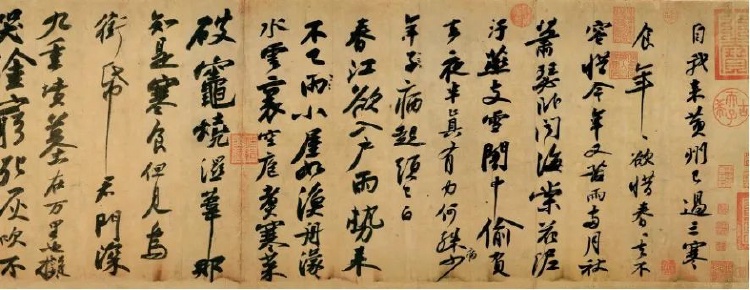 自我来黄州已過三寒
食年〻欲惜春〻去不
容惜今年又苦雨兩月秋
蕭瑟卧聞海棠花泥
汙燕支雪闇中偷負
去夜半真有力何殊病少
年子病起頭已白
春江欲入戶雨勢来
不已雨小屋如漁舟濛〻
水雲裏空庖煮寒菜
破竈燒濕葦那
知是寒食但見烏
銜帋君門深
九重墳墓在万里也擬
哭塗窮死灰吹不